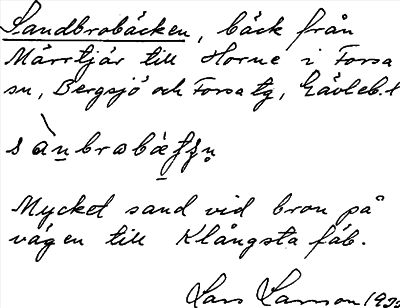 Sandbrobäcken, bäck från
Märrtjär till Horne i Forsa
sn, Bergsjö och Forsa tg, Gävleb. l
Mycket sand vid bron på
vägen till Klångsta fäb.
Lars Larsson